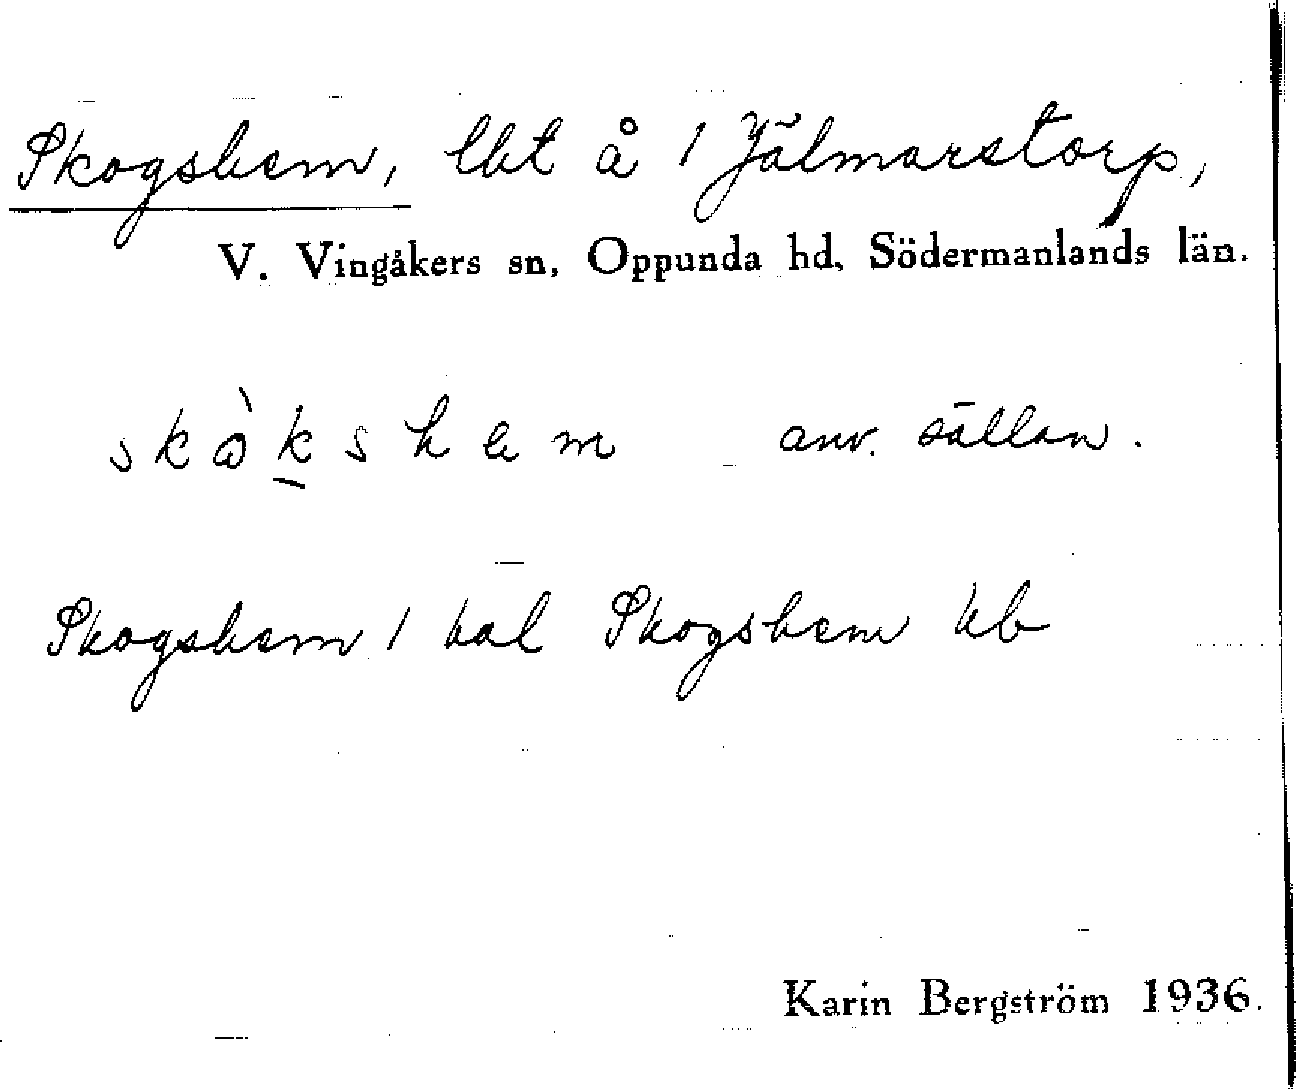 Skogshem, lht å 1 Jälmarstorp,
V. Vingåkers sn, Oppunda hd, Södermanlands län.
skòkshem anv. sällan.
Skogshem 1 hal Skogshem kb
Karin Bergström 1936.